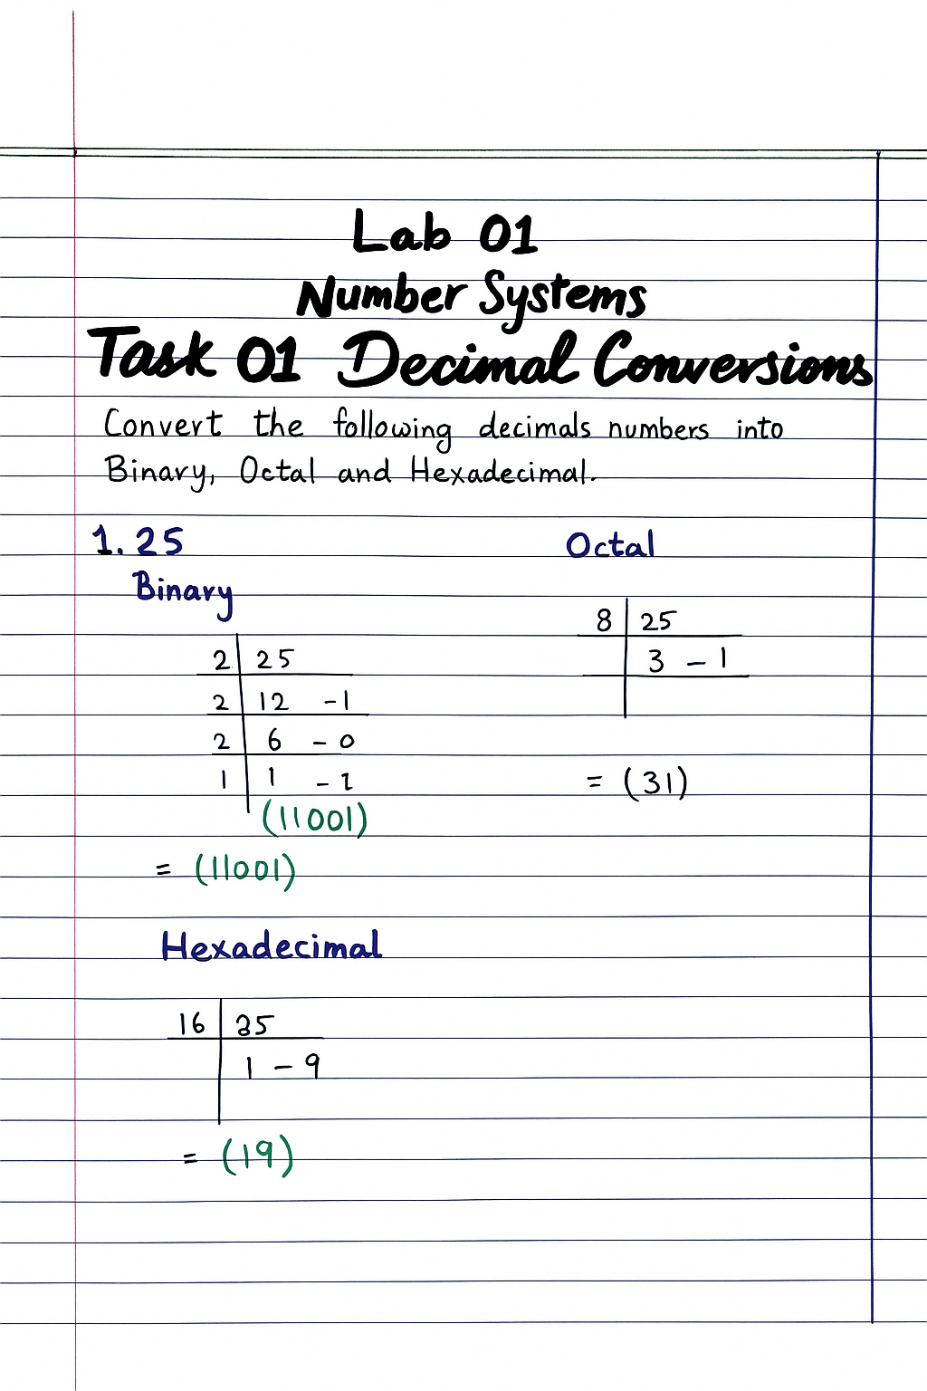 Lab 01
Number Systems
Task 01 Decimal Conversions
Convert the following decimals numbers into
Binary, Octal and Hexadecimal.
1. 25
Binary
2 | 25
2 | 12 - 1
2 | 6 - 0
1 | 1 - 1
(11001)
= (11001)
Octal
8 | 25
3 - 1
= (31)
Hexadecimal
16 | 25
1 - 9
= (19)